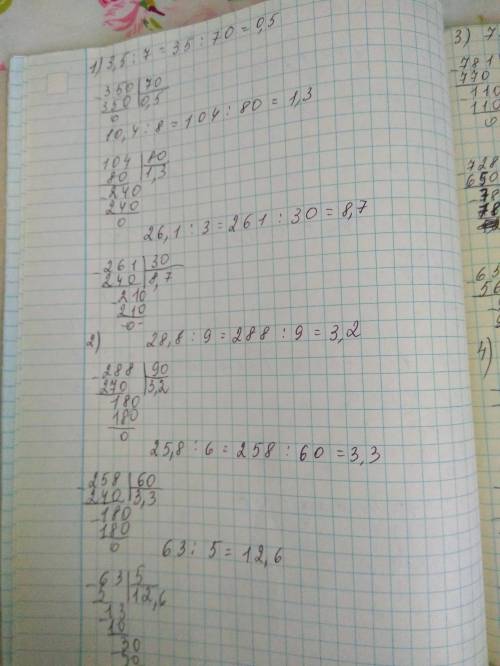 1) 3,5 : 7 = 35 : 70 = 0,5
- 350 | 70
350 | 0,5
0
10,4 : 8 = 104 : 80 = 1,3
104 | 80
80 | 1,3
- 240
240
0
26,1 : 3 = 261 : 30 = 8,7
- 261 | 30
240 | 8,7
- 210
210
0
2) 28,8 : 9 = 288 : 9 = 3,2
- 288 | 90
270 | 3,2
180
180
0
25,8 : 6 = 258 : 60 = 3,3
- 258 | 60
240 | 3,3
- 180
180
0
63 : 5 = 12,6
- 63 | 5
5 | 12,6
- 13
10
- 30
30
3) 7
- 781
770
- 110
110
0
- 728
650
- 78
78
- 65
56
4)